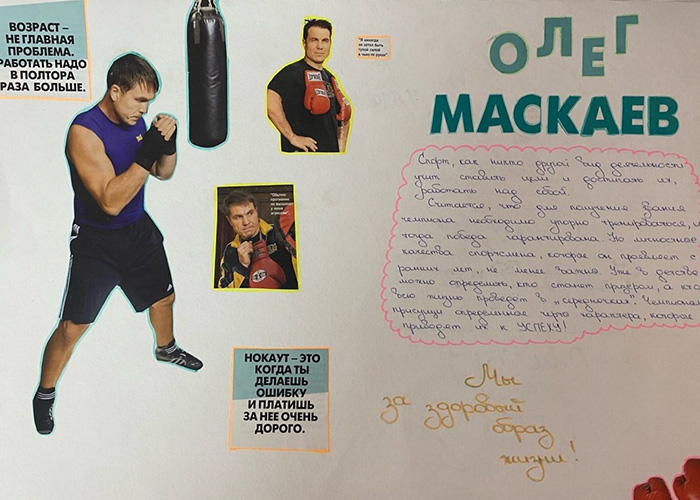 ВОЗРАСТ –
НЕ ГЛАВНАЯ
ПРОБЛЕМА.
РАБОТАТЬ НАДО
В ПОЛТОРА
РАЗА БОЛЬШЕ.
ОЛЕГ
МАСКАЕВ
Спорт, как никто другой вид деятельности
учит ставить цели и достигать их,
работать над собой.
Считается, что для получения звания
чемпиона необходимо упорно тренироваться, и
тогда победа гарантирована. Но личностные
качества спортсмена, которое он проявляет с
ранних лет, не менее важны. Уже в детстве
можно определить, кто станет призером, а кто
всю жизнь проведет в „середнячках". Чемпионам
присущи определенные черты характера, которое
приводят их к УСПЕХУ!
НОКАУТ – ЭТО
КОГДА ТЫ
ДЕЛАЕШЬ
ОШИБКУ
И ПЛАТИШЬ
ЗА НЕЕ ОЧЕНЬ
ДОРОГО.
Мы
за здоровый
образ
жизни!